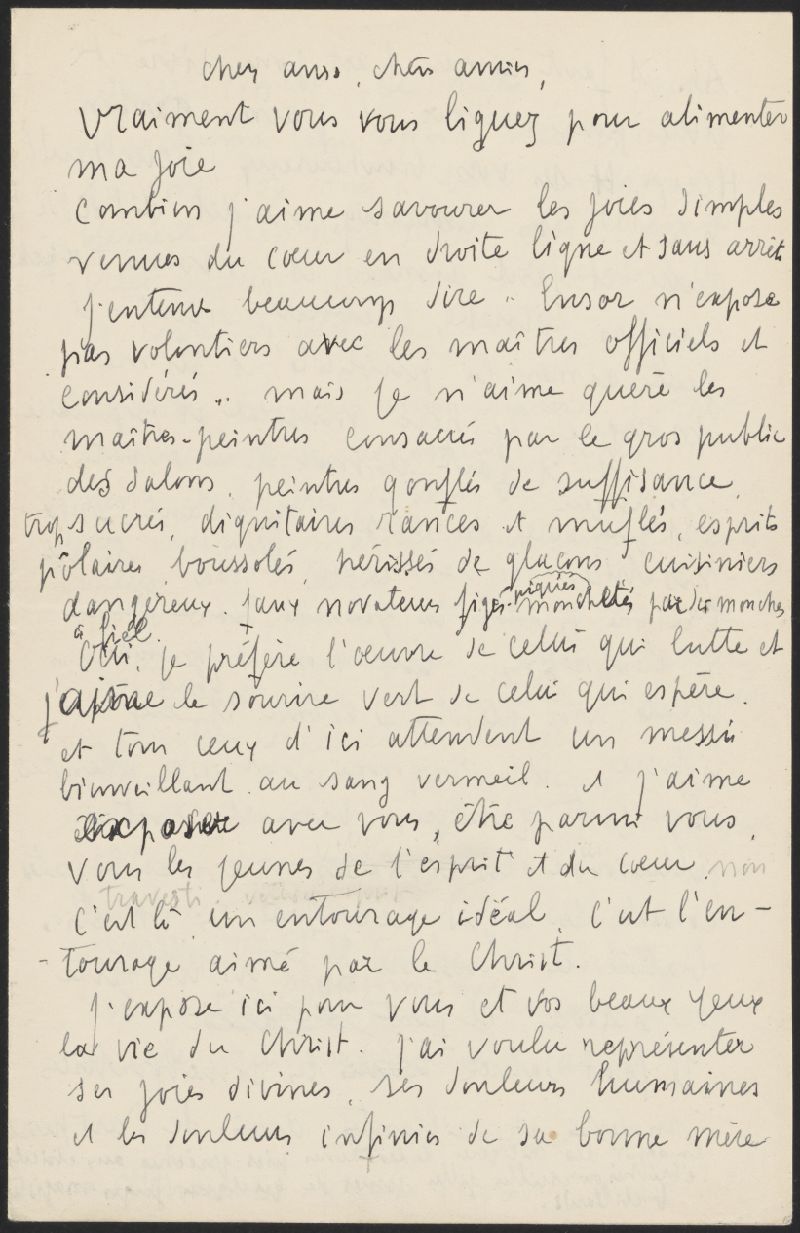 chers amis, chers amies,
Vraiment vous vous liguez pour alimenter
ma joie
Combien j'aime savourer les joies simples
venues du cœur en droite ligne et sans arrêt
j'entends beaucoup dire " Ensor n'expose
pas volontiers avec les maîtres officiels et
considérés " mais je n'aime guère les
maîtres-peintres consacrés par le gros public
des salons, peintres gonflés de suffisance,
trop sucrés, dignitaires rances et muflés, esprits
pôlaires boussolés, hérissés de glaçons cuisiniers
dangereux. faux novateurs figés piqués mouchetés par des mouches
à fiel.
Oui, je préfère l'œuvre de celui qui lutte et
j'aime le sourire vert de celui qui espère.
et tous ceux d'ici attendent un messie
bienveillant au sang vermeil. et j'aime
exposer avec vous, être parmi vous,
vous les jeunes de l'esprit et du cœur non
travesti.
C'est là un entourage idéal, c'est l'en-
-tourage aimé par le Christ.
J'expose ici pour vous et vos beaux yeux
la vie du Christ. j'ai voulu représenter
ses joies divines, ses douleurs humaines
et les douleurs infinies de sa bonne mère